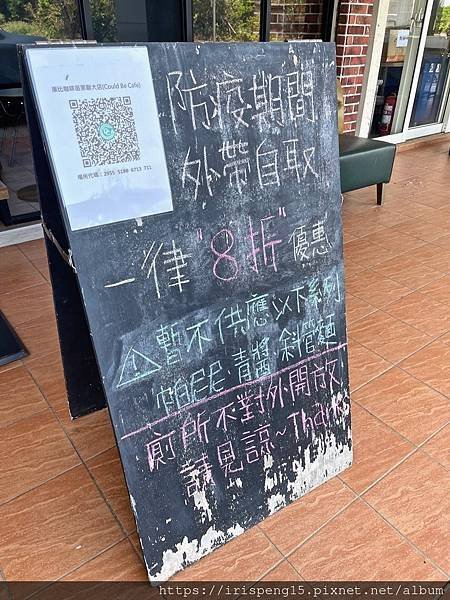 庫比咖啡苗栗頭大店(Could Be Cafe)
場所代碼：2955 5198 6713 711
防疫期間
外帶自取
一律"8折"優惠
暫不供應以下系列
帕尼尼.青醬.斜管麵
廁所不對外開放
請見諒~Thanks
https://irispeng15.pixnet.net/album